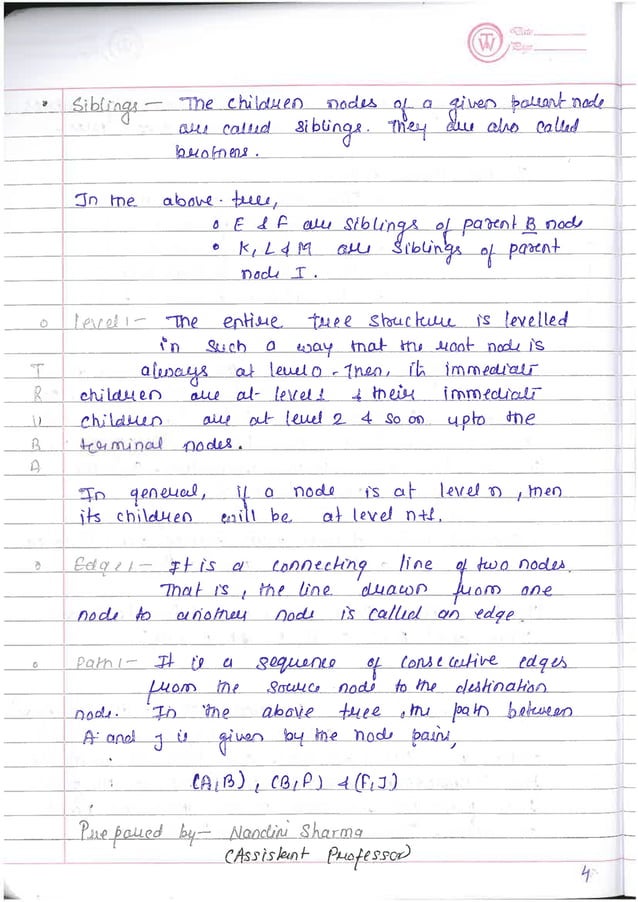 Date
Page
• Siblings – The children nodes of a given parent node
are called siblings. They are also called
brothers.
In the above tree,
o E & F are siblings of parent B node
• K, L & M are siblings of parent
node I.
o Level :- The entire tree structure is levelled
in such a way that the root node is
always at level 0. Then, its immediate
children are at level 1 & their immediate
children are at level 2 & so on upto the
terminal nodes.
In general, if a node is at level n, then
its children will be at level n+1.
o Edge :- It is a connecting line of two nodes.
That is, the line drawn from one
node to another node is called an edge.
o Path :- It is a sequence of consecutive edges
from the source node to the destination
node. In the above tree, the path between
A and J is given by the node pairs,
(A,B), (B,F) & (F,J)
Prepared by – Nandini Sharma
(Assistant Professor)
4